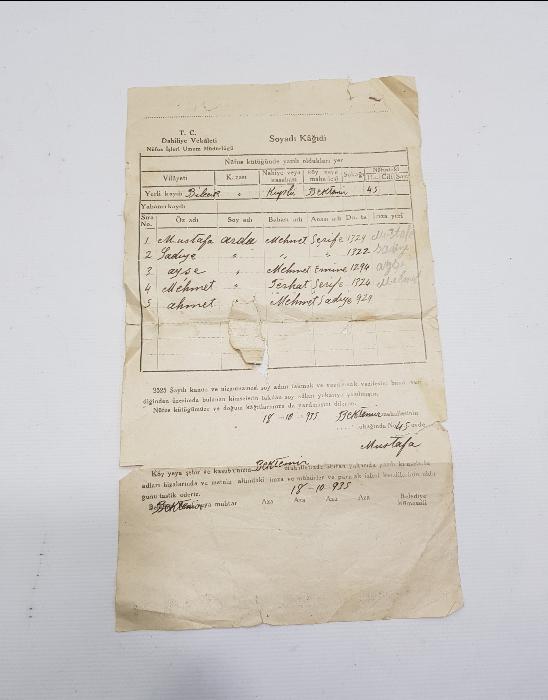 T. C.
Dahiliye Vekâleti
Nüfus İşleri Umum Müdürlüğü
Soyadı Kâğıdı
Nüfus kütüğünde yazılı oldukları yer
Vilâyeti Kazası Nahiye veya kasabası Köy veya mahallesi Sokağı
Yerli kaydı Bilecik " Küplü Bektemir 45
Yabancı kaydı
Sıra No. Öz adı Soy adı Babası adı Anası adı
1 Mustafa arda Mehmet Şerife 1324 Mustafa
2 Sadiye " " " 1322
3 ayşe " Mehmet Emine 1294 ayşe
4 Mehmet " Ferhat Şerife 1324 Mehmet
5 ahmet Mehmet Sadiye 929
2525 Sayılı kanun ve nizamnamesi soy adını takmak ve yazdırmak vazifesini bana
diğinden üzerimde bulunan kimselerin takılan soy adları yukarıya yazılmıştır.
Nüfus kütüğümüze ve doğum kâğıtlarımıza da yazılmasını dilerim.
18-10-935 Bektemir mahallesinin
No. 45 unda
Mustafa
Köy veya şehir ve kasabamızın Bektemir mahallesinde oturan yukarıda yazılı
adları hizalarında ve metnin altındaki imza ve mühürler ve parmak
gunu tasdik ederiz.
18-10-935
Bektemir veya muhtar Aza Aza Aza Aza Belediye mümessili